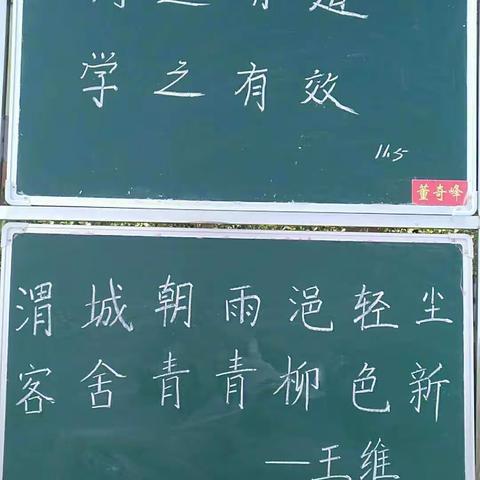 之有
学之有效
11.5
董奇峰
渭城朝雨浥轻尘
客舍青青柳色新
—王维